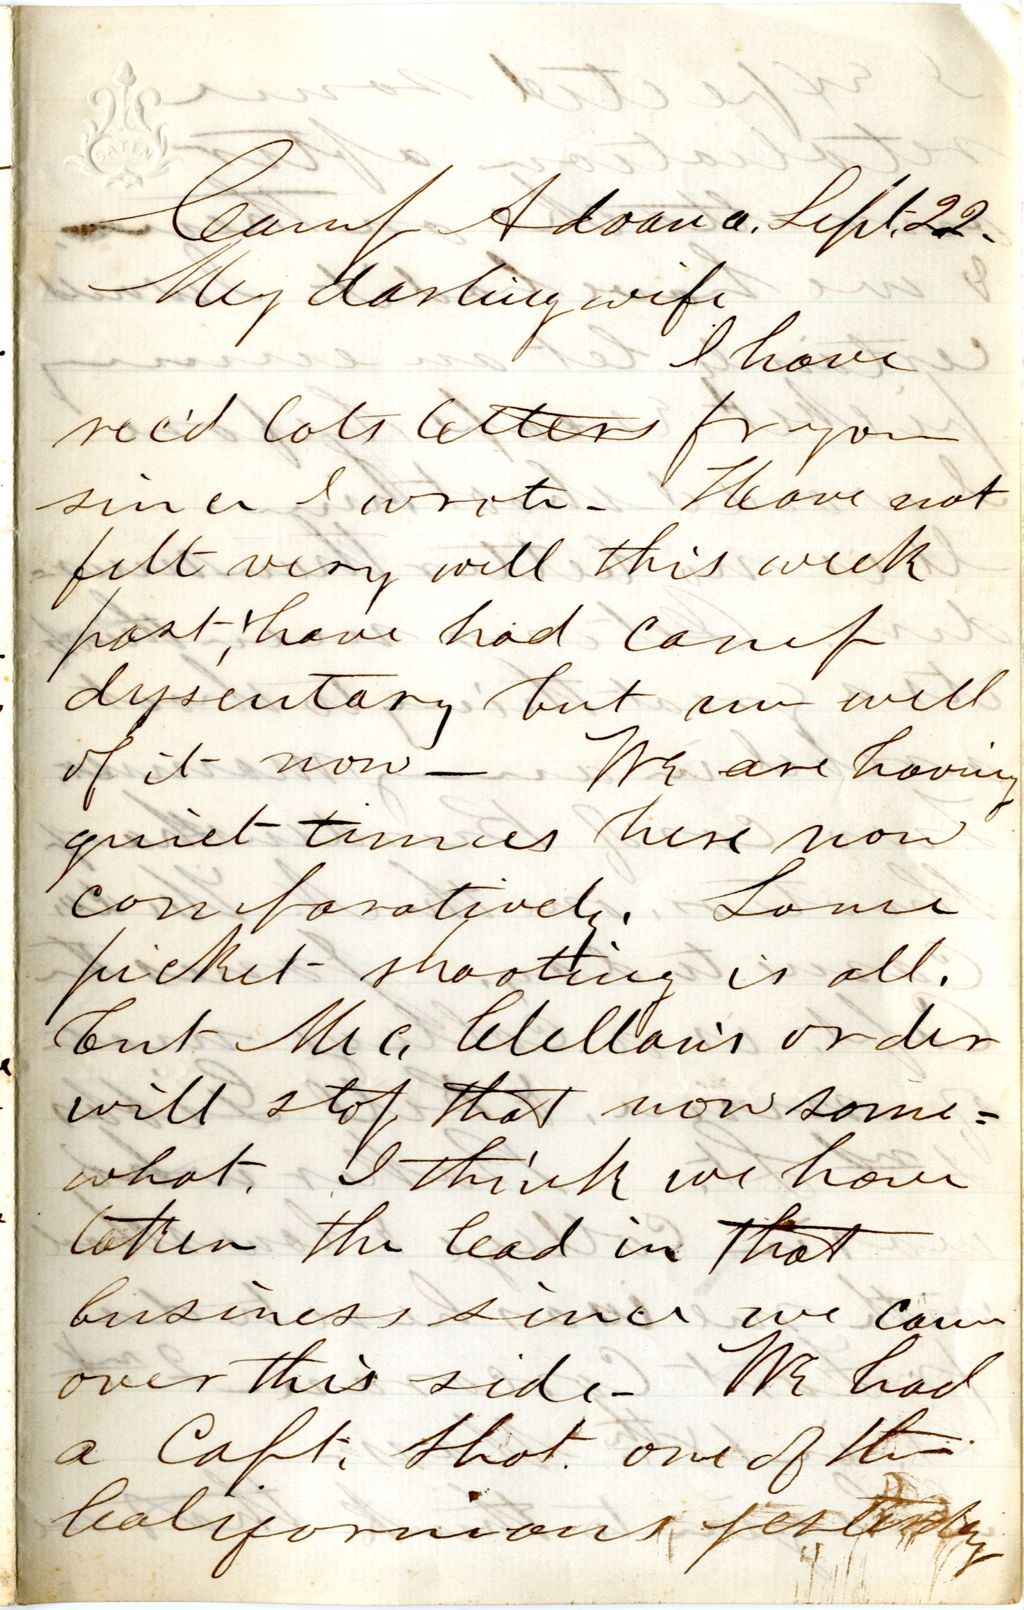 SATIN
Camp Advance. Sept. 22.
My darling wife
I have
rec'd lots letters fr you
since I wrote - Have not
felt very well this week
past, have had camp
dysentary but am well
of it now — We are having
quiet times here now
comparatively. Some
picket shooting is all.
but Mc. Clellan's order
will stop that now some=
what. I think we have
taken the lead in that
business since we came
over this side - We had
a Capt. shot. one of the
Californians yesterday